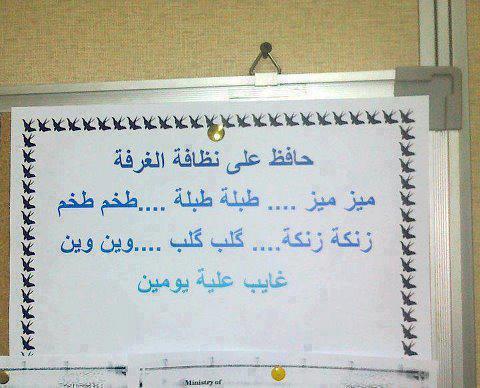 حافظ على نظافة الغرفة
ميز ميز .... طبلة طبلة ....طخم طخم
زنكة زنكة.... گلب گلب ....وين وين
غايب علية يومين
Ministry of